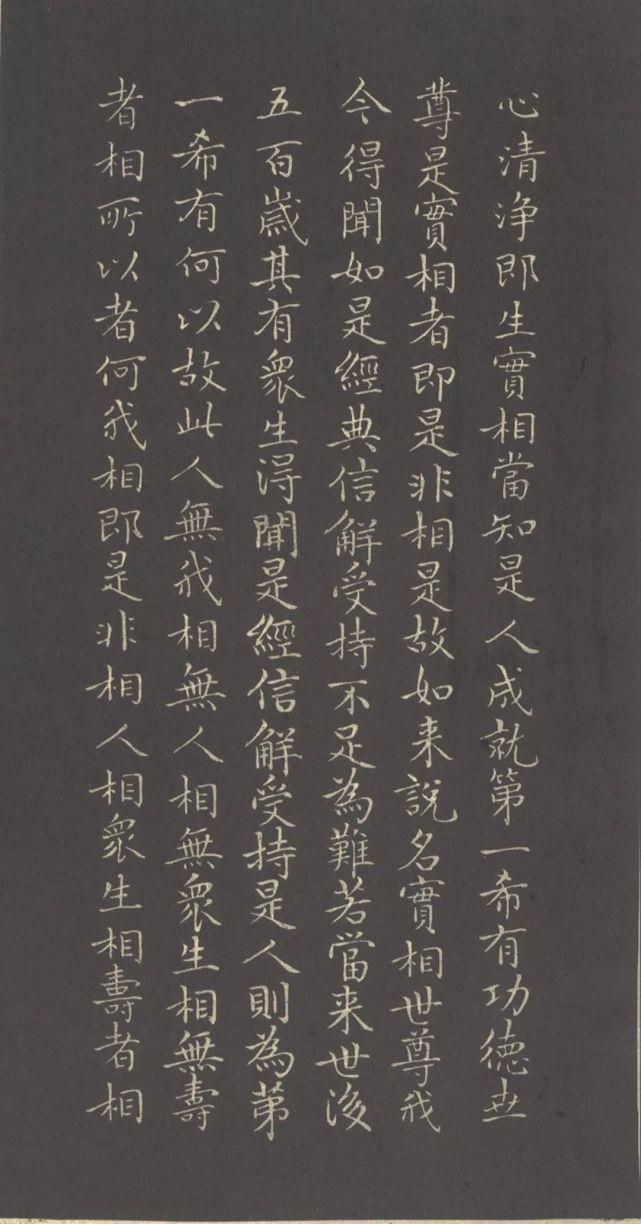 心清淨即生實相當知是人成就第一希有功德世
尊是實相者即是非相是故如来說名實相世尊我
今得聞如是經典信解受持不足為難若當来世後
五百歲其有眾生得聞是經信解受持是人則為第
一希有何以故此人無我相無人相無眾生相無壽
者相所以者何我相即是非相人相眾生相壽者相